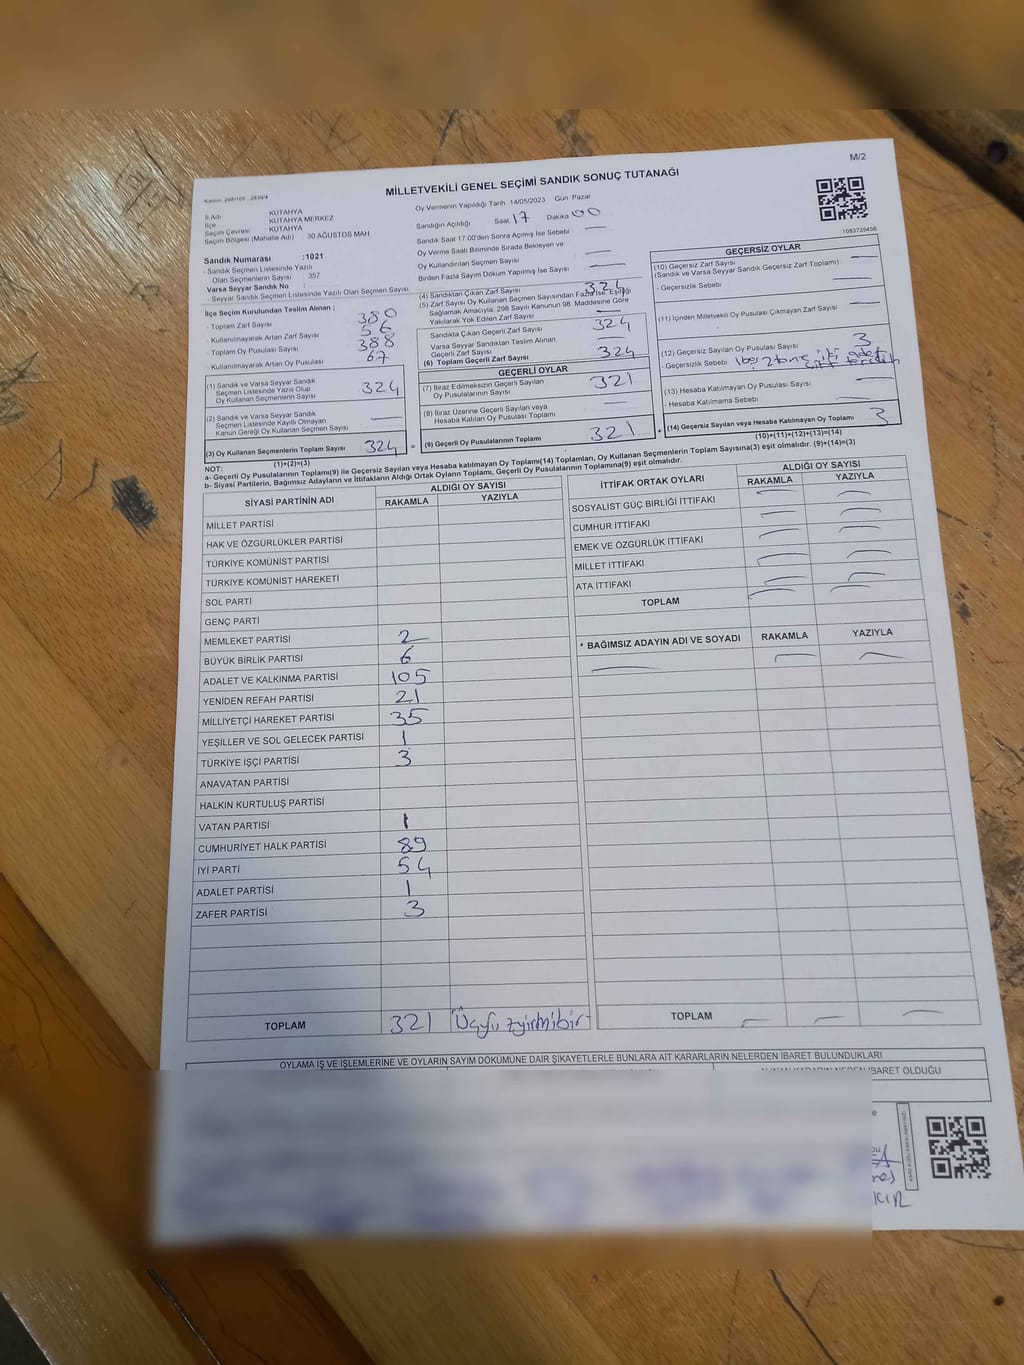 M/2
Kanun: 298/105 , 2839/4
MİLLETVEKİLİ GENEL SEÇİMİ SANDIK SONUÇ TUTANAĞI
İl Adı KÜTAHYA
İlçe KÜTAHYA MERKEZ
Seçim Çevresi KÜTAHYA
Seçim Bölgesi (Mahalle Adı) 30 AĞUSTOS MAH.
Sandık Numarası :1021
- Sandık Seçmen Listesinde Yazılı
Olan Seçmenlerin Sayısı : 357
Varsa Seyyar Sandık No :
- Seyyar Sandık Seçmen Listesinde Yazılı Olan Seçmen Sayısı
Oy Vermenin Yapıldığı Tarih 14/05/2023 Gün Pazar
Sandığın Açıldığı Saat 17 Dakika 00
Sandık Saat 17.00'den Sonra Açılmış İse Sebebi —
Oy Verme Saati Bitiminde Sırada Bekleyen ve
Oy Kullandırılan Seçmen Sayısı —
Birden Fazla Sayım Döküm Yapılmış İse Sayısı —
1083735456
İlçe Seçim Kurulundan Teslim Alınan ;
- Toplam Zarf Sayısı 380
- Kullanılmayarak Artan Zarf Sayısı 56
- Toplam Oy Pusulası Sayısı 388
- Kullanılmayarak Artan Oy Pusulası 67
(1) Sandık ve Varsa Seyyar Sandık
Seçmen Listesinde Yazılı Olup
Oy Kullanan Seçmenlerin Sayısı 324
(2) Sandık ve Varsa Seyyar Sandık
Seçmen Listesinde Kayıtlı Olmayan
Kanun Gereği Oy Kullanan Seçmen Sayısı —
(3) Oy Kullanan Seçmenlerin Toplam Sayısı 324
(1)+(2)=(3)
(4) Sandıktan Çıkan Zarf Sayısı 324
(5) Zarf Sayısı Oy Kullanan Seçmen Sayısından Fazla İse, Eşitliği
Sağlamak Amacıyla, 298 Sayılı Kanunun 98. Maddesine Göre
Yakılarak Yok Edilen Zarf Sayısı —
Sandıkta Çıkan Geçerli Zarf Sayısı 324
Varsa Seyyar Sandıktan Teslim Alınan
Geçerli Zarf Sayısı —
(6) Toplam Geçerli Zarf Sayısı 324
GEÇERLİ OYLAR
(7) İtiraz Edilmeksizin Geçerli Sayılan
Oy Pusulalarının Sayısı 321
(8) İtiraz Üzerine Geçerli Sayılan veya
Hesaba Katılan Oy Pusulası Toplamı —
= (9) Geçerli Oy Pusulalarının Toplamı 321 +
GEÇERSİZ OYLAR
(10) Geçersiz Zarf Sayısı
(Sandık ve Varsa Seyyar Sandık Geçersiz Zarf Toplamı) —
- Geçersizlik Sebebi —
(11) İçinden Milletvekili Oy Pusulası Çıkmayan Zarf Sayısı —
(12) Geçersiz Sayılan Oy Pusulası Sayısı 3
- Geçersizlik Sebebi
(13) Hesaba Katılmayan Oy Pusulası Sayısı —
- Hesaba Katılmama Sebebi —
(14) Geçersiz Sayılan veya Hesaba Katılmayan Oy Toplamı 3
(10)+(11)+(12)+(13)=(14)
NOT:
a- Geçerli Oy Pusulalarının Toplamı(9) ile Geçersiz Sayılan veya Hesaba katılmayan Oy Toplamı(14) Toplamları, Oy Kullanan Seçmenlerin Toplam Sayısına(3) eşit olmalıdır. (9)+(14)=(3)
b- Siyasi Partilerin, Bağımsız Adayların ve İttifakların Aldığı Ortak Oyların Toplamı, Geçerli Oy Pusulalarının Toplamına(9) eşit olmalıdır.
SİYASİ PARTİNİN ADI ALDIĞI OY SAYISI
RAKAMLA YAZIYLA
MİLLET PARTİSİ
HAK VE ÖZGÜRLÜKLER PARTİSİ
TÜRKİYE KOMÜNİST PARTİSİ
TÜRKİYE KOMÜNİST HAREKETİ
SOL PARTİ
GENÇ PARTİ
MEMLEKET PARTİSİ 2
BÜYÜK BİRLİK PARTİSİ 6
ADALET VE KALKINMA PARTİSİ 105
YENİDEN REFAH PARTİSİ 21
MİLLİYETÇİ HAREKET PARTİSİ 35
YEŞİLLER VE SOL GELECEK PARTİSİ 1
TÜRKİYE İŞÇİ PARTİSİ 3
ANAVATAN PARTİSİ
HALKIN KURTULUŞ PARTİSİ
VATAN PARTİSİ 1
CUMHURİYET HALK PARTİSİ 89
İYİ PARTİ 54
ADALET PARTİSİ 1
ZAFER PARTİSİ 3
TOPLAM 321 Üçyüzyirmibir
İTTİFAK ORTAK OYLARI ALDIĞI OY SAYISI
RAKAMLA YAZIYLA
SOSYALİST GÜÇ BİRLİĞİ İTTİFAKI — —
CUMHUR İTTİFAKI — —
EMEK VE ÖZGÜRLÜK İTTİFAKI — —
MİLLET İTTİFAKI — —
ATA İTTİFAKI — —
TOPLAM — —
* BAĞIMSIZ ADAYIN ADI VE SOYADI RAKAMLA YAZIYLA
— — —
TOPLAM — — —
OYLAMA İŞ VE İŞLEMLERİNE VE OYLARIN SAYIM DÖKÜMÜNE DAİR ŞİKAYETLERLE BUNLARA AİT KARARLARIN NELERDEN İBARET BULUNDUKLARI
İBARET OLDUĞU